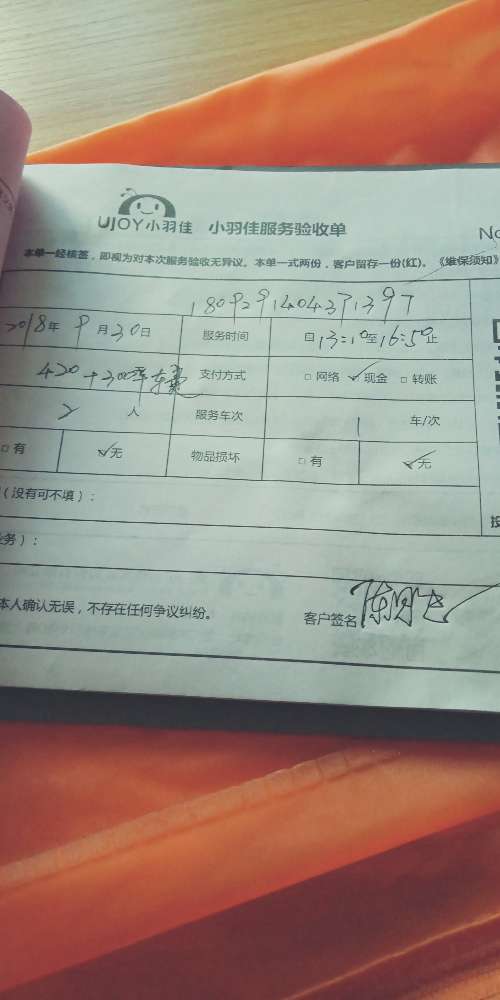 UJOY小羽佳 小羽佳服务验收单
No
本单一经核签，即视为对本次服务验收无异议。本单一式两份，客户留存一份(红)。《维保须知》
1809291404371397
2018年 9月30日 服务时间 自13:10至16:50止
420+300 支付方式 □网络 ✓现金 □转账
2人 服务车次 1 车/次
□有 ✓无 物品损坏 □有 ✓无
（没有可不填）：
务）：
本人确认无误，不存在任何争议纠纷。 客户签名